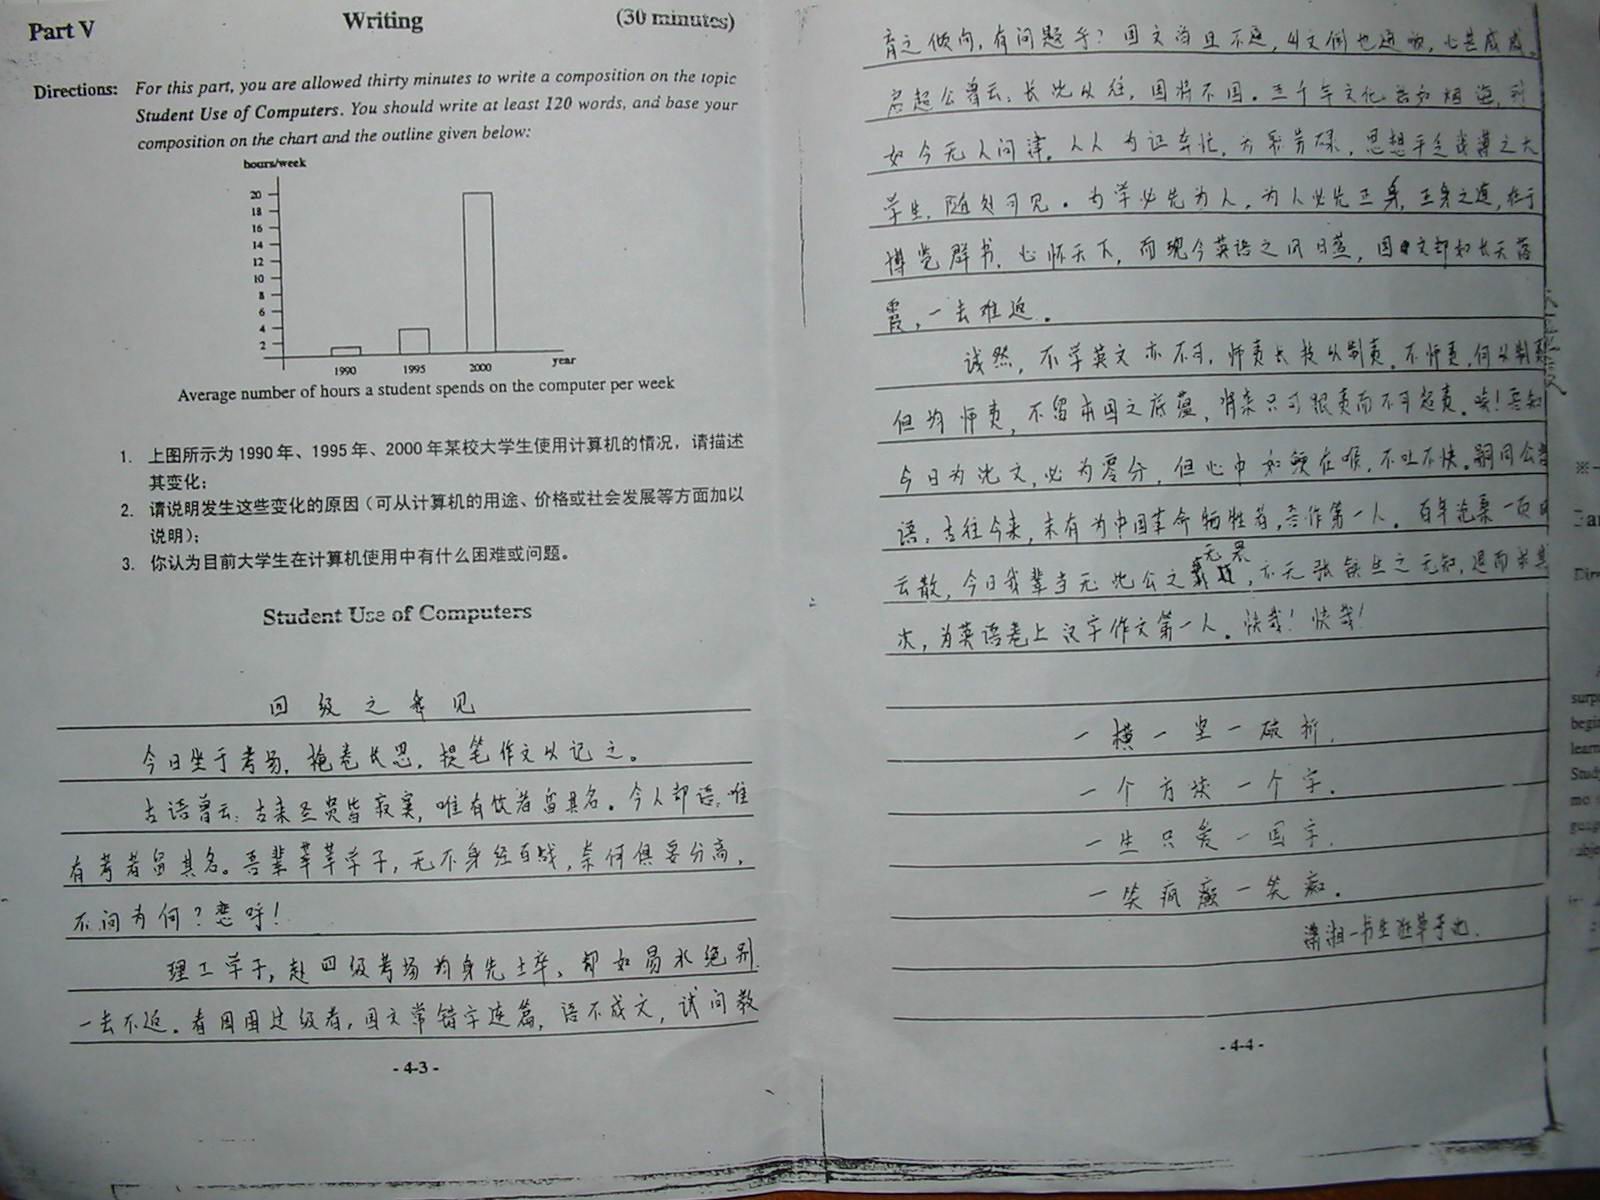 Part V
Writing
(30 minutes)
Directions: For this part, you are allowed thirty minutes to write a composition on the topic
Student Use of Computers. You should write at least 120 words, and base your
composition on the chart and the outline given below:
hours/week
20
18
16
14
12
10
8
6
4
2
1990 1995 2000
year
Average number of hours a student spends on the computer per week
1. 上图所示为1990年、1995年、2000年某校大学生使用计算机的情况，请描述
其变化；
2. 请说明发生这些变化的原因（可从计算机的用途、价格或社会发展等方面加以
说明）；
3. 你认为目前大学生在计算机使用中有什么困难或问题。
Student Use of Computers
四级之我见
今日坐于考场，掩卷长思，提笔作文以记之。
古语曾云：古来圣贤皆寂寞，唯有饮者留其名。今人却语：唯
有考者留其名。吾辈莘莘学子，无不身经百战，奈何俱要分高，
不问为何？悲呼！
理工学子，赴四级考场为身先士卒，却如易水绝别
一去不返。看国国过级者，国文常错字连篇，语不成文，试问教
- 4-3 -
育之倾向，有问题乎？国文尚且不通，心甚戚戚。
启超公曾云：长此以往，国将不国。五千年文化浩如烟海，到
如今无人问津。人人为证奔忙，为形劳碌，思想手足浅薄之大
学生，随处可见。为学必先为人，为人必先正身，正身之道，在于
博览群书，心怀天下，而现今英语之风日盛，国文却如长天落
霞，一去难返。
诚然，不学英文亦不可，师夷长技以制夷，不师夷，何以制夷
但均师夷，不留本国之底蕴，将来只可跟夷而不可超夷。唉！吾知
今日为此文，必为零分，但心中如鲠在喉，不吐不快。嗣同公曾
语：古往今来，未有为中国革命牺牲者，吾作第一人。百年沧桑一页
云散，今日我辈当无此公之无畏，亦无张铁生之无知，退而求其
次，为英语卷上汉字作文第一人。快哉！快哉！
一横一竖一破折，
一个方块一个字。
一生只爱一国字，
一笑疯癫一笑痴。
潇湘一书生涯草于此．
- 4-4 -